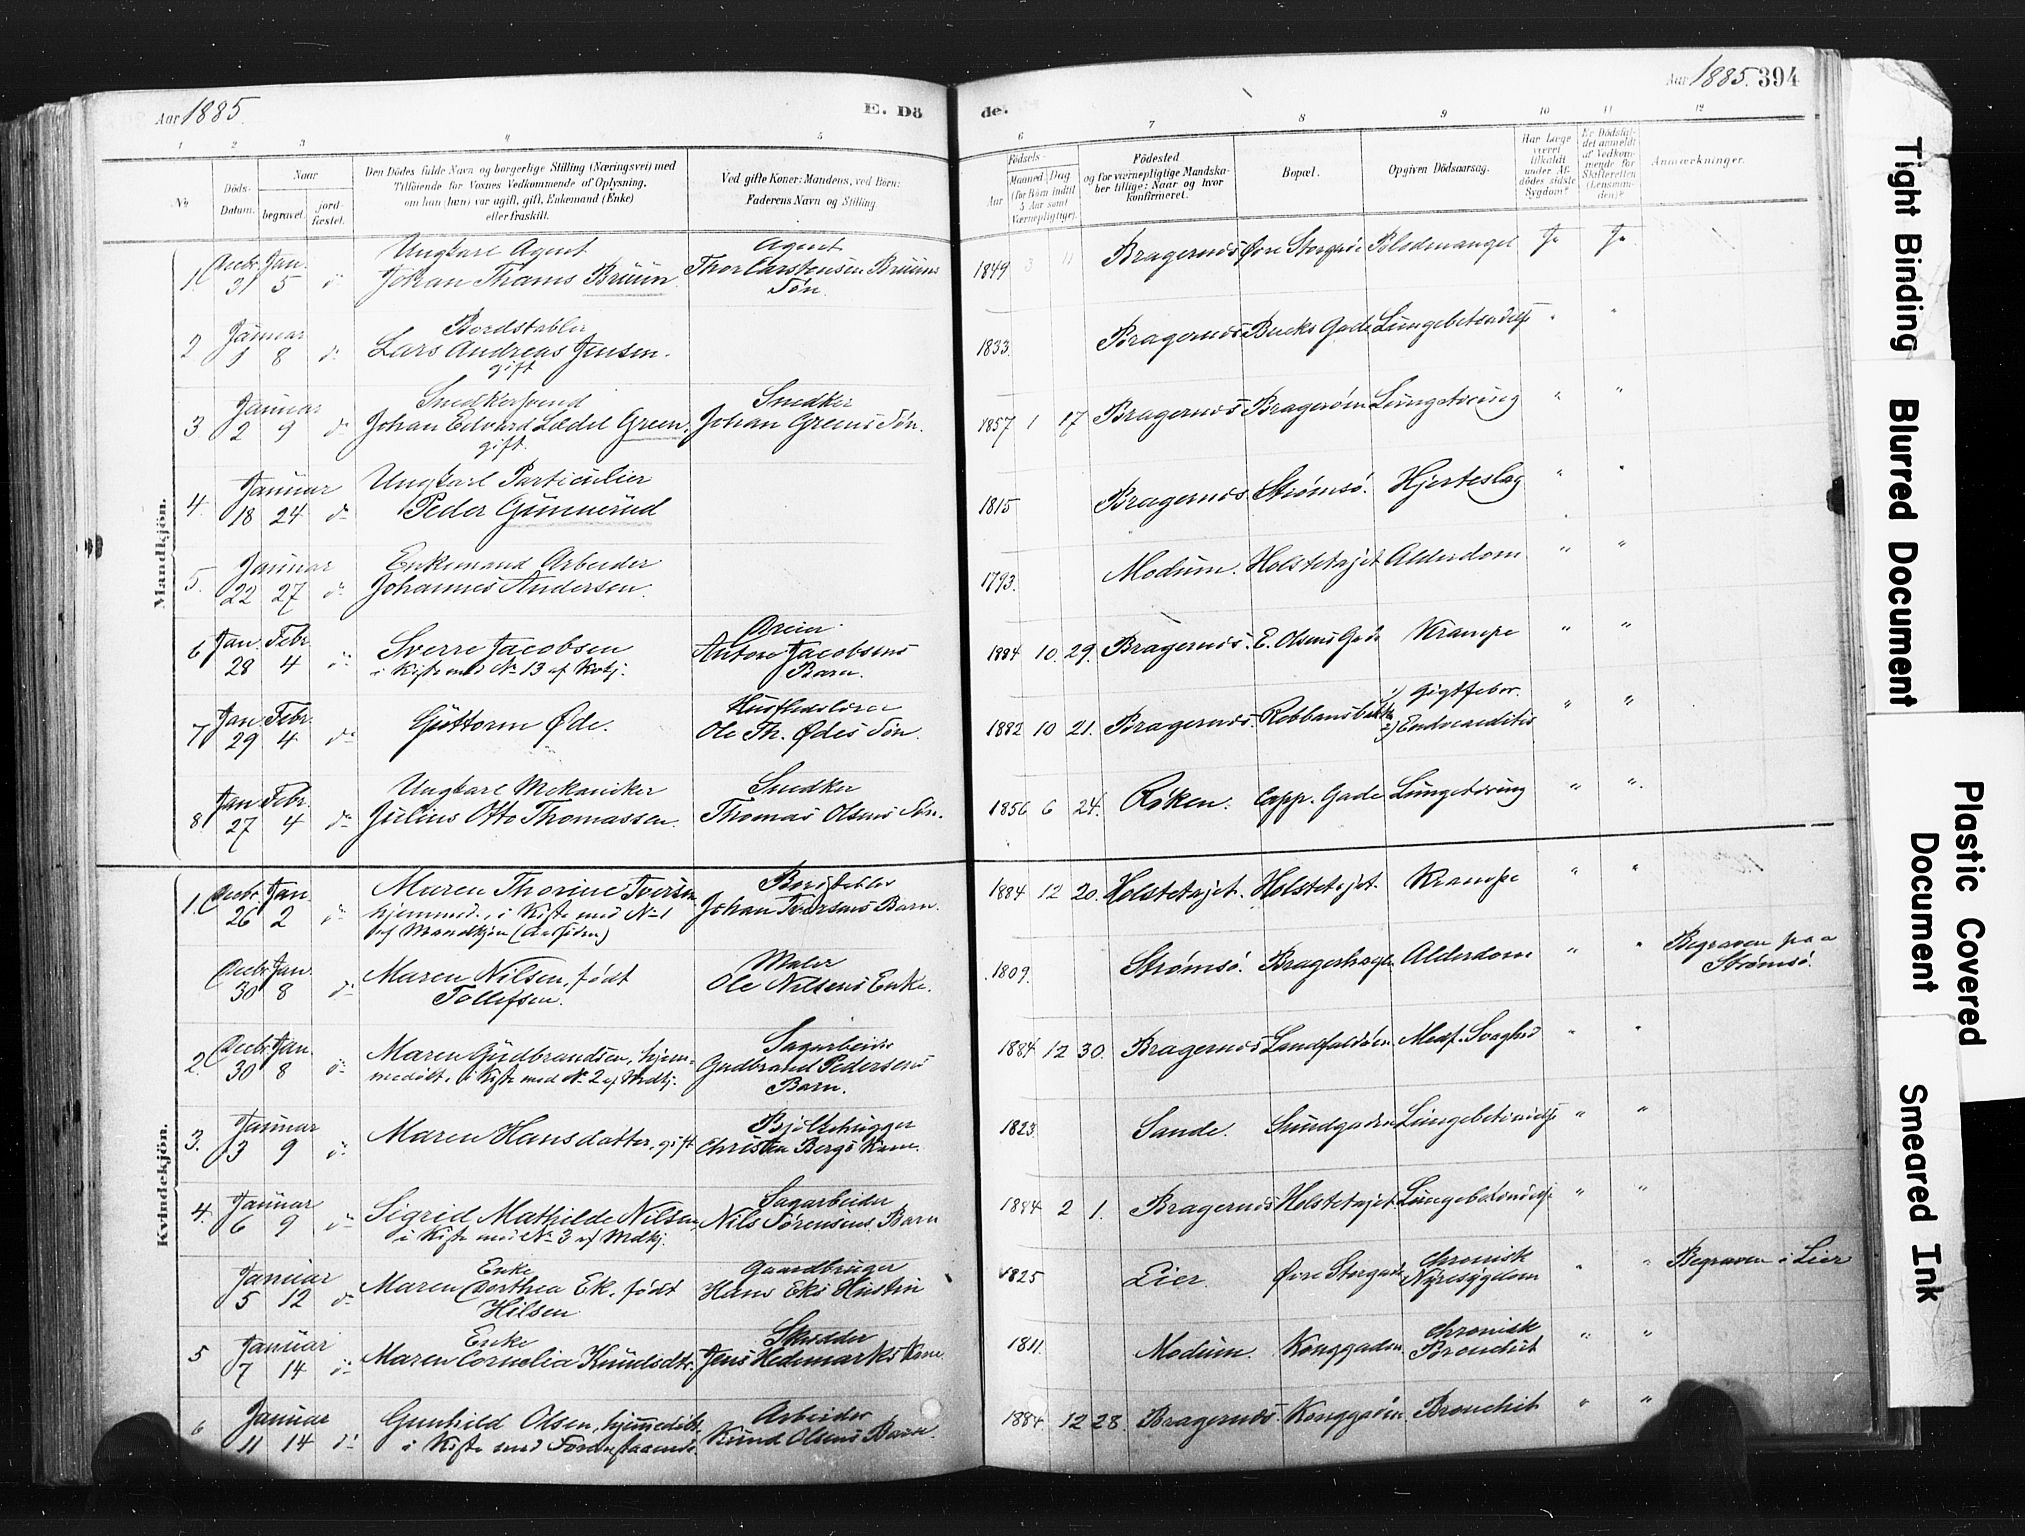 Aar 1885.
E. Dö
de.
Aar 1885. 394
1 2 3 4 5 6 7 8 9 10 11 12
No
Döds-Datum.
Naar
begravet.
jord-fæstet.
Den Dödes fulde Navn og borgerlige Stilling (Næringsvei) med
Tilföiende for Voxnes Vedkommende af Oplysning,
om han (hun) var ugift, gift, Enkemand (Enke)
eller fraskilt.
Ved gifte Koner: Mandens, ved Börn:
Faderens Navn og Stilling.
Födsels-
Aar
Maaned Dag
(for Börn indtil
5 Aar samt
Værnepligtige).
Födested
og for værnepligtige Mandska-
ber tillige: Naar og hvor
konfirmeret.
Bopæl.
Opgiven Dödsaarsag.
Har Læge
været
tilkaldt
under Af-
dödes sidste
Sygdom?
Er Dödsfal-
det anmeldt
af Vedkom-
mende for
Skifteretten
(Lensman-
den)?
Anmærkninger.
Mandkjön.
1. Decbr. 31 Jan. 5 do Ungkarl Agent
Johan Thams Bruun
Agent
Thor Carstensen Bruuns
Søn.
1849 3 11 Bragernæs Øvre Storgade Blodmangel Ja Ja
2 Januar 1 8 do Bordstabler
Lars Andreas Jensen.
gift
1833. Bragernæs Bucks Gade Lungebetændelse " "
3 Januar 2 9 do Snedkersvend
Johan Edvard Lædel Green.
gift.
Snedker
Johan Greens Søn.
1857 1 17 Bragernæs Bragerøen Lungetæring " "
4. Januar 18 24 do Ungkarl Particulier
Peder Gunnerud
1815 Bragernæs Strømsø. Hjerteslag " "
5. Januar 22 27 do Enkemand Arbeider
Johannes Andersen.
1793. Modum. Holstetajet Alderdom " "
6 Jan. 28 Febr 4 do Sverre Jacobsen
i Kiste med No 13 af Kvkj.
Dreier
Antore Jacobsens
Barn.
1884 10. 29. Bragernæs. E. Olsens Gade Krampe " "
7 Jan. 29 Febr. 4 do Guttorm Øde.
Ole Th. Ødes Søn.
1882 10 21. Bragernæs. 1) Gigtfeber.
2) Endocarditis " "
8 Jan 27 Febr. 4 do Ungkarl Mekaniker
Julius Otto Thomassen.
Snedker
Thomas Olsens Søn.
1856 6 24. Røken. Capp. Gade Lungetæring " "
Kvindekjön.
1. Decbr. 26 Jan. 2 do Maren Thorine Iversen
hjemmed., i Kiste med No 1
af Mandkjön
Johan Iversens Barn.
1884 12 20. Holstetajet. Holstetajet. Krampe " "
Decbr. 30 Jan. 8 do Maren Nilsen, født
Tollefsen.
Maler
Ole Nilsens Enke.
1809. Strømsø. Alderdom " " Begraven paa
Strømsø.
2. Decbr. 30 Jan. 8 do Maren Gudbrandsen, hjem-
medøbt, i Kiste med No 2 af Mdkj.
Sagarbeider
Gudbrand Pedersens
Barn.
1884 12 30. Bragernæs Landfaldøen Medf. Svaghed " "
3. Januar 3 9 do Maren Hansdatter, gift
Christen Bergs Kone.
1823. Sande. Sundgaden Lungebetændelse " "
4. Januar 6 9 do Sigrid Mathilde Nilsen,
i Kiste med No 3 af Mdkj.
Sagarbeider
Nils Sørensens Barn
1884 2 1. Bragernæs Holstetajet Lungebetændelse " "
Januar 5 12 do Enke
Maren Dorthea Ek, født
Hilsen
Gaardbruger
Hans Eks Hustru
1825 Lier. Øvre Storgade chronisk
Nyresygdom " " Begraven i Lier
5 Januar 7 14 do Enke
Maren Cornelia Knudsdtr.
Skrædder
Jens Hedemarks Kone
1811. Modum. Konggaden chronisk
Bronchit " "
6 Januar 11 14 do Gunhild Olsen, hjemmedøbt,
i Kiste med Foranstaaende.
Arbeider
Knud Olsens Barn.
1884. 12 28. Bragernæs. Konggaden Bronchit " "
Tight Binding
Blurred Document
Plastic Covered
Document
Smeared Ink